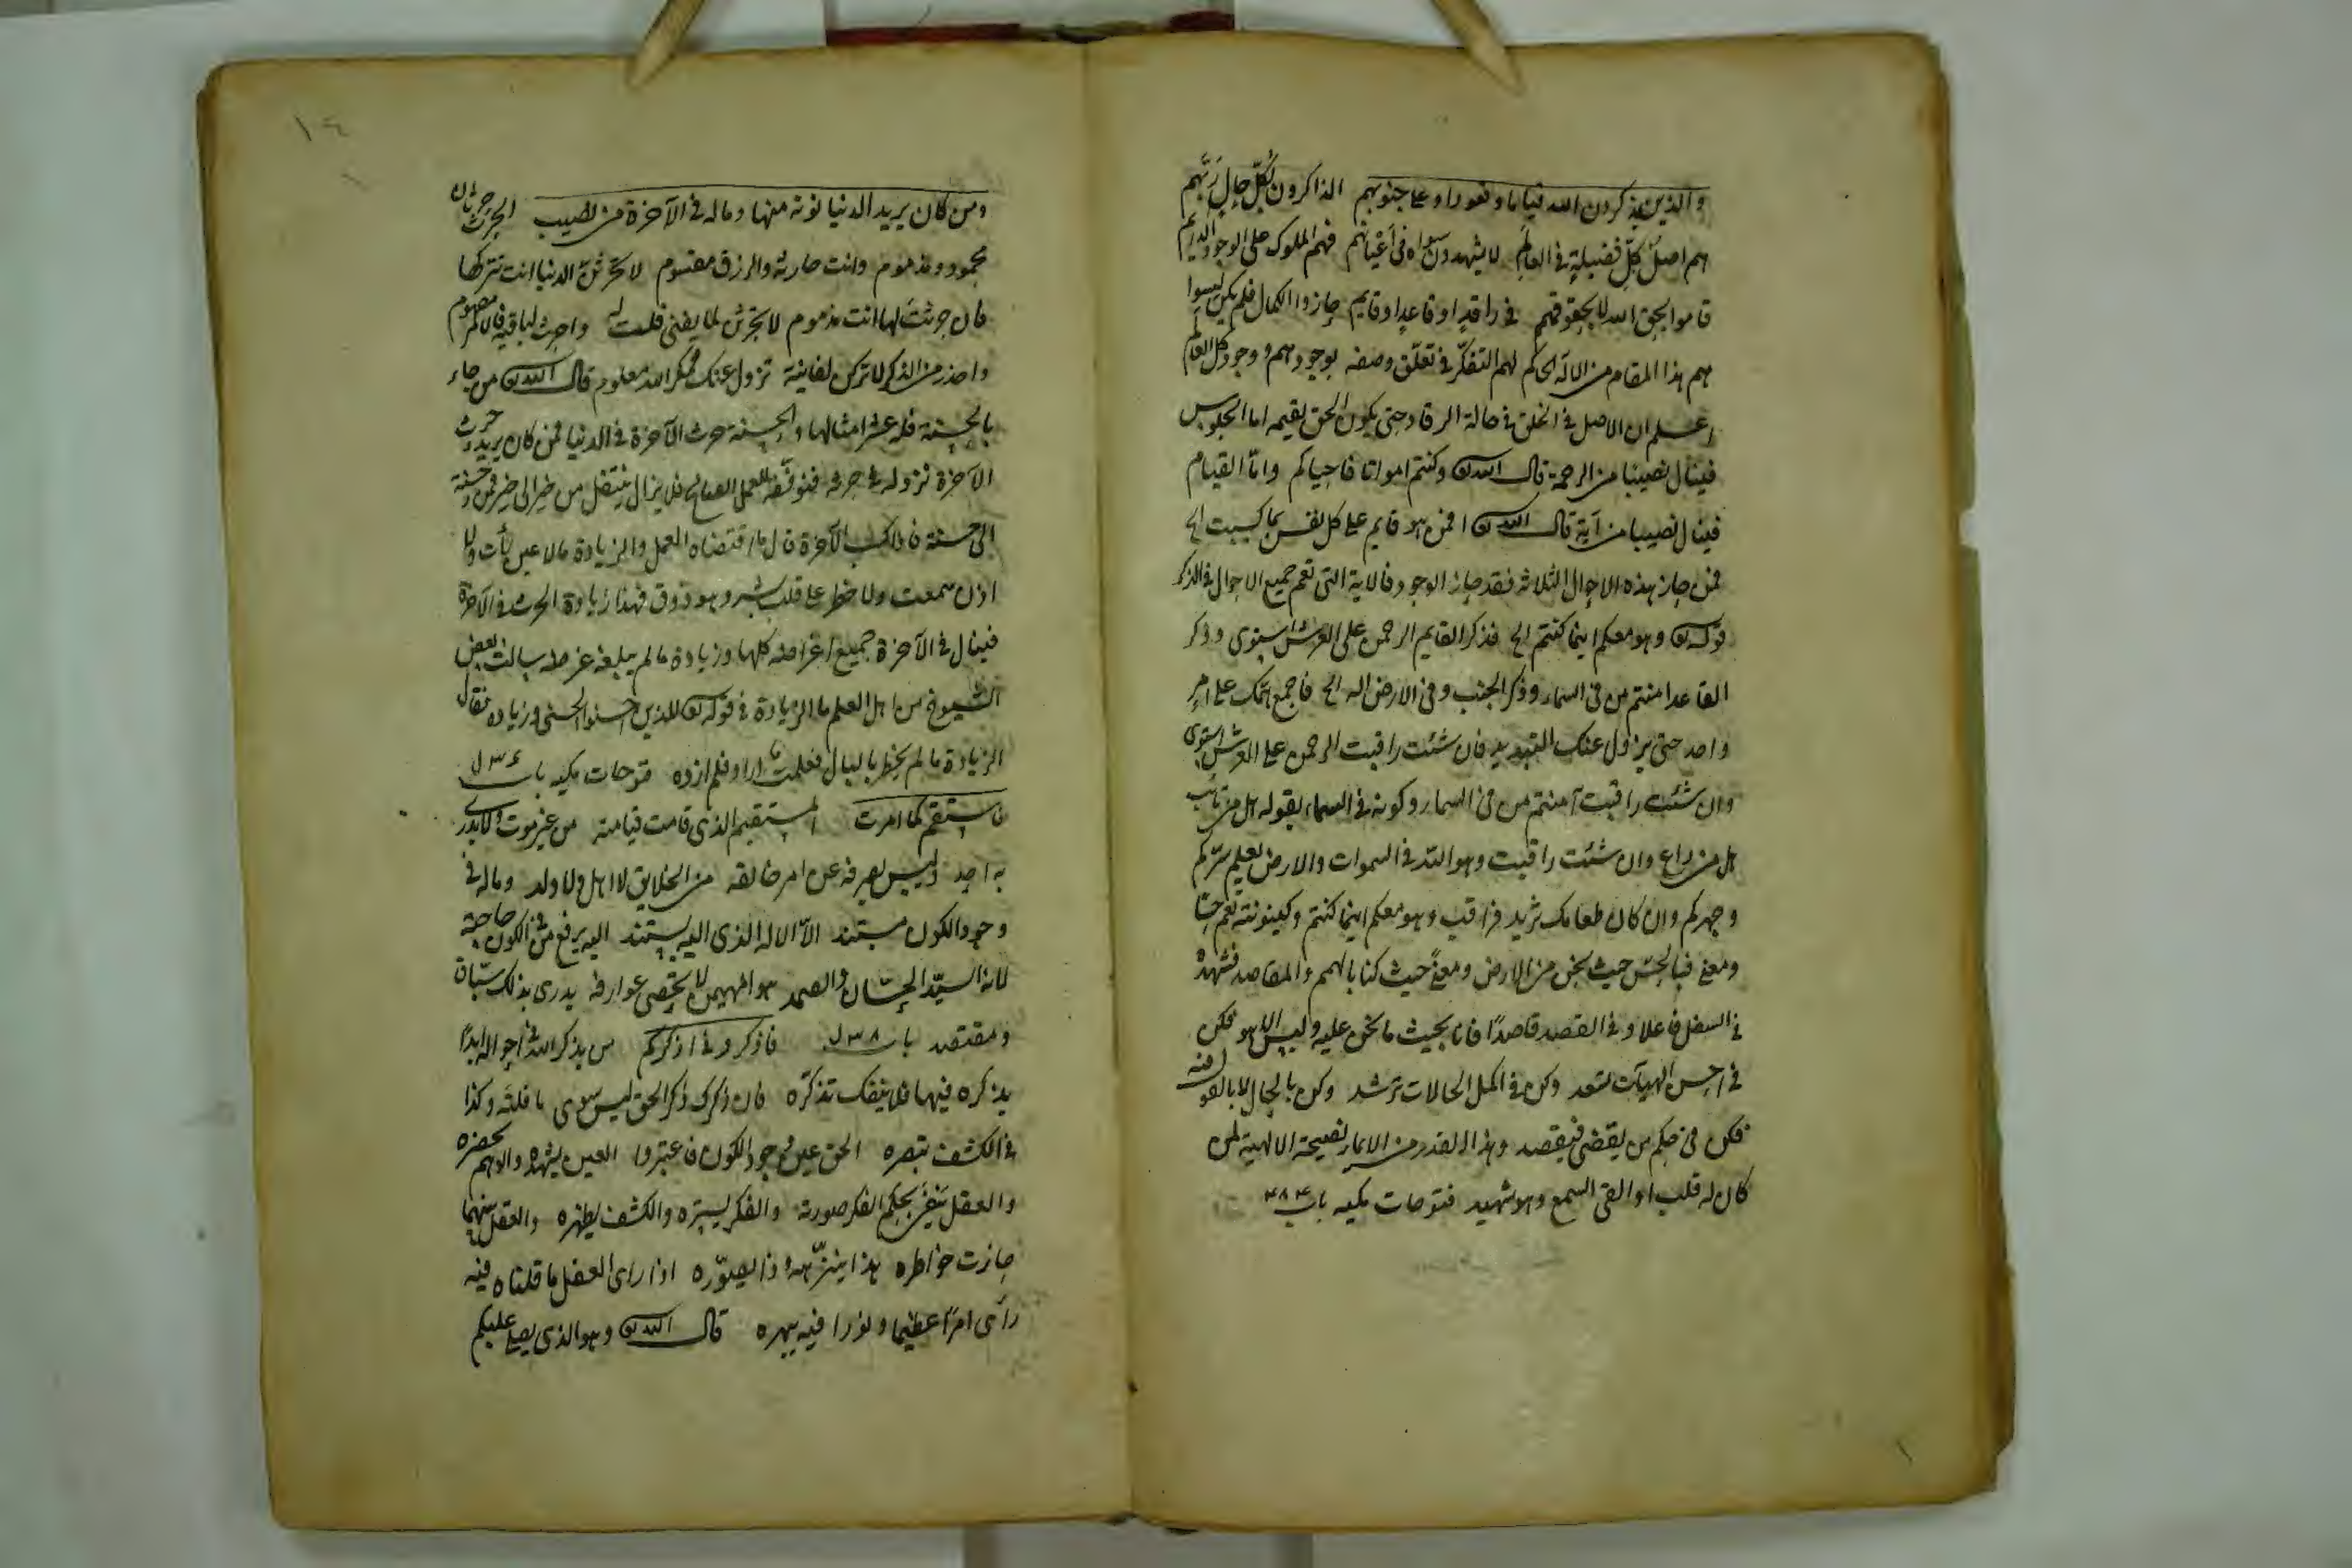 والذين يذكرون الله قياما وقعودا وعلى جنوبهم الذاكرون بكل حال ربهم
هم اصل كل فضيلة في العالم لا يشهدون سواه في اعيانهم فهم الملوك على الوجود الدايم
قاموا بحق الله لا بحقوقهم في راقد او قاعد او قايم حازوا الكمال فلم يكن لسوا
هم هذا المقام من الاله الحاكم لهم التفكر في تعلق وصفه بوجودهم ووجود كل العالم
اعلم ان الاصل في الخلق في حالة الرقاد حتى يكون الحق يقيمه اما الجلوس
فينال نصيبا من الرحمة قال الله تع وكنتم امواتا فاحياكم واما القيام
فينال نصيبا من آية قال الله تع افمن هو قايم على كل نفس بما كسبت الخ
فمن حاز هذه الاحوال الثلاثة فقد حاز الوجود فالاية التي تعم جميع الاحوال في الذكر
قوله تع وهو معكم اينما كنتم الخ فذكر القايم الرحمن على العرش استوى وذكر
القاعد امنتم من في السماء وذكر الجنب وفي الارض اله الخ فاجمع همك على امر
واحد حتى يزول عنك التبديد فان شئت راقبت الرحمن على العرش استوى
وان شئت راقبت آمنتم من في السماء وكونه في السماء بقوله هل من تائب
هل من داع وان شئت راقبت وهو الله في السموات والارض يعلم سركم
وجهركم وان كان طعامك ثريد فراقب وهو معكم اينما كنتم وكينونته تعم حسا
ومعنى فبالحس حيث نحن من الارض ومعنى حيث كنا بالهمم والمقاصد فتشهده
في السفل فاعلا وفي القصد قاصدا فانا بحيث ما نحن عليه وليس الا هو فكن
في احسن الهيآت تسعد وكن في اكمل الحالات ترشد وكن بالحال لا بالقو
فكن في حكم من يقضي فيقصد وهذا القدر من الايمار نصيحة الالهية لمن
كان له قلب او القى السمع وهو شهيد فتوحات مكيه باب ٤٨٣
١٤
ومن كان يريد الدنيا نوته منها وماله في الآخرة من نصيب الحرث حرثان
محمود ومذموم وانت حارثه والرزق مقسوم لا تحرثن الدنيا انت تتركها
فان حرثت لها انت مذموم لا تحرثن لما يفنى فلست له واحرث لباقية
واحذر من المكر لا تركن لفانية تزول عنك فمكر الله معلوم قال الله تع من جاء
بالحسنة فله عشر امثالها والحسنة حرث الآخرة في الدنيا فمن كان يريد حرث
الآخرة نزد له في حرثه فنوفقه للعمل الصالح فلا يزال ينتقل من خير الى خير فمن حسنة
الى حسنة فاذا كسب الآخرة نال ما اقتضاه العمل والزيادة مالا عين رأت ولا
اذن سمعت ولا خطر على قلب بشر وهو ذوق فهذا زيادة الحرث في الآخرة
فينال في الآخرة جميع اغراضه كلها وزيادة ما لم يبلغه غرضه سالت بعض
الشيوخ من اهل العلم ما الزيادة في قوله تع للذين احسنوا الحسنى وزيادة فقال
الزيادة ما لم يخطر بالبال فعلمت ما اراد فلم ازده فتوحات مكيه باب
فاستقم كما امرت المستقيم الذي قامت قيامته من غير موت ولا يدري
به احد وليس يصرفه عن امر خالقه من الخلايق لا اهل ولا ولد وماله في
وجود الكون مستند الا الاله الذي اليه يستند اليه يرفع من في الكون حاجته
لانه السيد الحسان والصمد هو المهيمن لا تحصى عوارفه يدري بذلك سباق
ومقتصد باب فاذكروني اذكركم من يذكر الله في احواله ابدا
يذكره فيها فلا ينفك تذكره فان ذكرك ذكر الحق ليس سوى ما قلته وكذا
في الكشف تبصره الحق عين وجود الكون فاعتبروا العين يشهده والوهم يحضره
والعقل ينفي بحكم الفكر صورته والفكر يستره والكشف يظهره والعقل بينهما
حازت خواطره هذا ينزهه وذا يصوره اذا راى العقل ما قلناه فيه
رأى امرا عظيما ونورا فيه يبهره قال الله تع وهو الذي يصلي عليكم